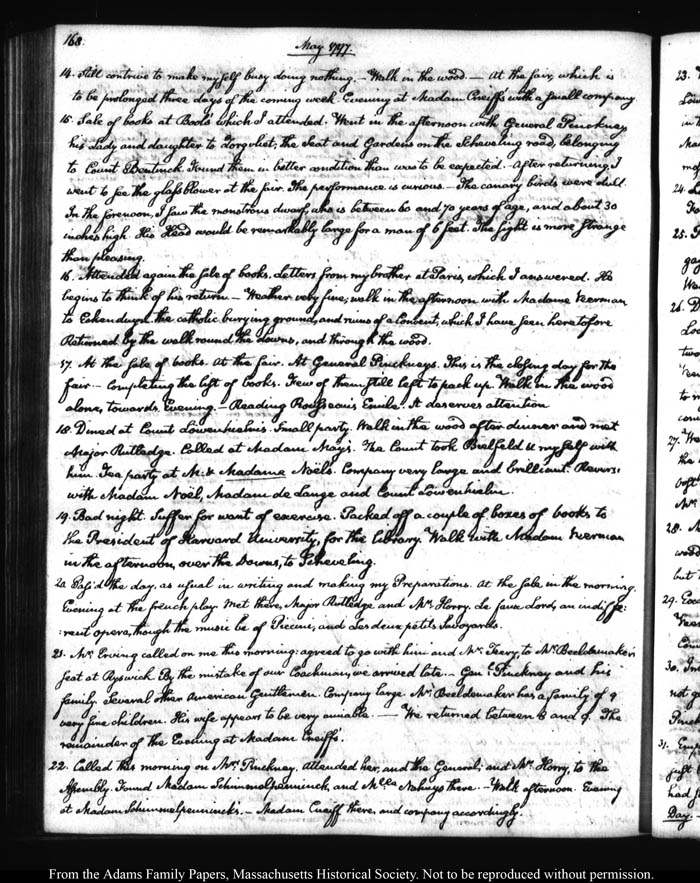 168.
May 1797.
14. Still contrive to make myself busy doing nothing. — Walk in the wood. — At the fair, which is
to be prolonged three days of the coming week. Evening at Madam Cneiff's with a small company
15. Sale of books at Bools' which I attended. Went in the afternoon with General Pinckney
his Lady and daughter to Zorgvliet, the Seat and Gardens on the Scheveling road, belonging
to Count Bentinck. Found them in better condition than was to be expected. — After returning I
went to see the glass blower at the fair. The performance is curious. — The canary birds were dull.
In the forenoon, I saw the monstrous dwarf, who is between 60 and 70 years of age, and about 30
inches high. His Head would be remarkably large for a man of 6 feet. The sight is more strange
than pleasing.
16. Attended again the sale of books. Letters from my brother at Paris, which I answered. He
begins to think of his return. — Weather very fine; walk in the afternoon with Madame Veerman
to Eykenduyn the catholic burying ground, and ruins of a Convent, which I have seen heretofore
Returned by the walk round the downs, and through the wood.
17. At the sale of books. At the fair. At General Pinckney's. This is the closing day for the
fair. — Completing the list of books. Few of them still left to pack up. Walk in the wood
alone, towards Evening. — Reading Rousseau's Emile. It deserves attention
18. Dined at Count Löwenhielm's. Small party. Walk in the wood after dinner and met
Major Rutledge. Called at Madam May's. The Count took Bielfeld & myself with
him. Tea party at M: & Madame Noël's. Company very large and brilliant. Revers:
with Madam Noël, Madam de Lange and Count Löwenhielm.
19. Bad night. Suffer for want of exercise. Packed off a couple of boxes of books to
the President of Harvard University, for the Library. Walk with Madam Veerman
in the afternoon, over the Downs, to Scheveling.
20. Pass'd the day, as usual in writing and making my Preparations. At the sale in the morning.
Evening at the french play. Met there, Major Rutledge and Mr. Horry. Le faux Lord, an indiffe:
:rent opera, though the music be of Piccini, and Les deux petits Savoyards.
21. Mr. Erving called on me this morning: agreed to go with him and Mr. Terry, to Mr. Beeldemaker's
seat at Ryswick. By the mistake of our Coachman, we arrived late. — Genl. Pinckney and his
family. Several other American Gentlemen. Company large. Mr. Beeldemaker has a family of 9
very fine children. His wife appears to be very amiable. — We returned between 8 and 9. The
remainder of the Evening at Madam Cneiff's.
22. Called this morning on Mrs. Pinckney. Attended her, and the General, and Mr. Horry, to the
Assembly. Found Madam Schimmelpenninck, and Mlle. Nahuys there. — Walk afternoon. Evening
at Madam Schimmelpennincks. — Madam Cneiff there, and company accordingly.
23.
24.
25.
26.
27.
28.
29.
30.
31.
Day.
From the Adams Family Papers, Massachusetts Historical Society. Not to be reproduced without permission.